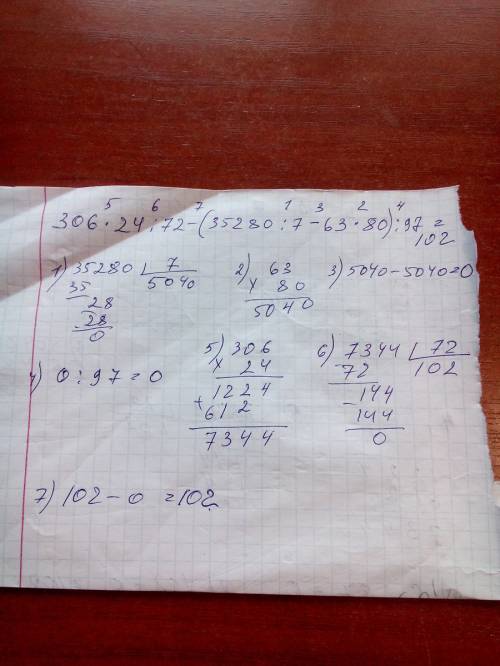 5 6 7 1 3 2 4
306·24:72-(35280:7-63·80):97=
102
1) 35280 7 2) 63 3) 5040-5040=0
35 5040 × 80
28 5040
-28
0
4) 0:97=0 5) 306 6) 7344 72
× 24 -72 102
1224 144
+612 -144
7344 0
7) 102-0=102